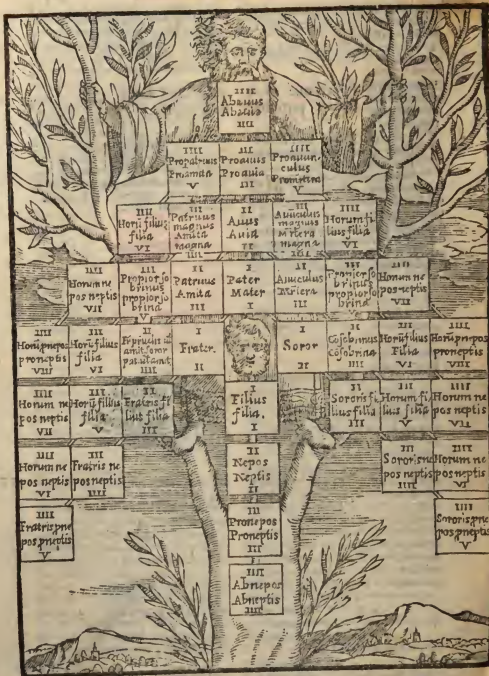 IIII
Abauus
Abauia
IIII
IIII
Propatruus
Proamita
V
III
Proauus
Proauia
III
IIII
Proauun
culus
Promatertera
V
IIII
Horū filius
filia
VI
III
Patruus
magnus
Amita
magna
IIII
II
Auus
Auia
II
III
Auūculus
magnus
Mrtera
magna
IIII
IIII
Horum fi
lius filia
VI
IIII
Horum ne
pos neptis
VII
III
Propior so
brinus
propior so
brina
V
II
Patruus
Amita
III
I
Pater
Mater
I
II
Auūculus
Mrtera
III
III
Propier so
brinus
propior so
brina
IIII
Horum ne
pos neptis
VII
IIII
Horū pnepos
proneptis
VIII
III
Horū filius
filia
VI
II
IIII
I
Frater.
II
I
Soror
II
II
Cōsobrinus
Cōsobrina
IIII
III
Horū filius
Filia
VI
IIII
Horū pnepos
proneptis
VIII
IIII
Horum ne
pos neptis
VII
III
Horū filius
filia
V
II
Fratris fi
lius filia
III
I
Filius
filia.
I
II
Sororis fi
lius filia
III
III
Horum fi
lius filia
V
IIII
Horum ne
pos neptis
VII
IIII
Horum ne
pos neptis
VI
III
Fratris ne
pos neptis
IIII
II
Nepos
Neptis
II
III
Sororis ne
pos neptis
IIII
IIII
Horum ne
pos neptis
VI
IIII
Fratris pne
pos pneptis
V
III
Pronepos
Proneptis
III
IIII
Sororis pne
pos pneptis
V
IIII
Abnepos
Abneptis
IIII